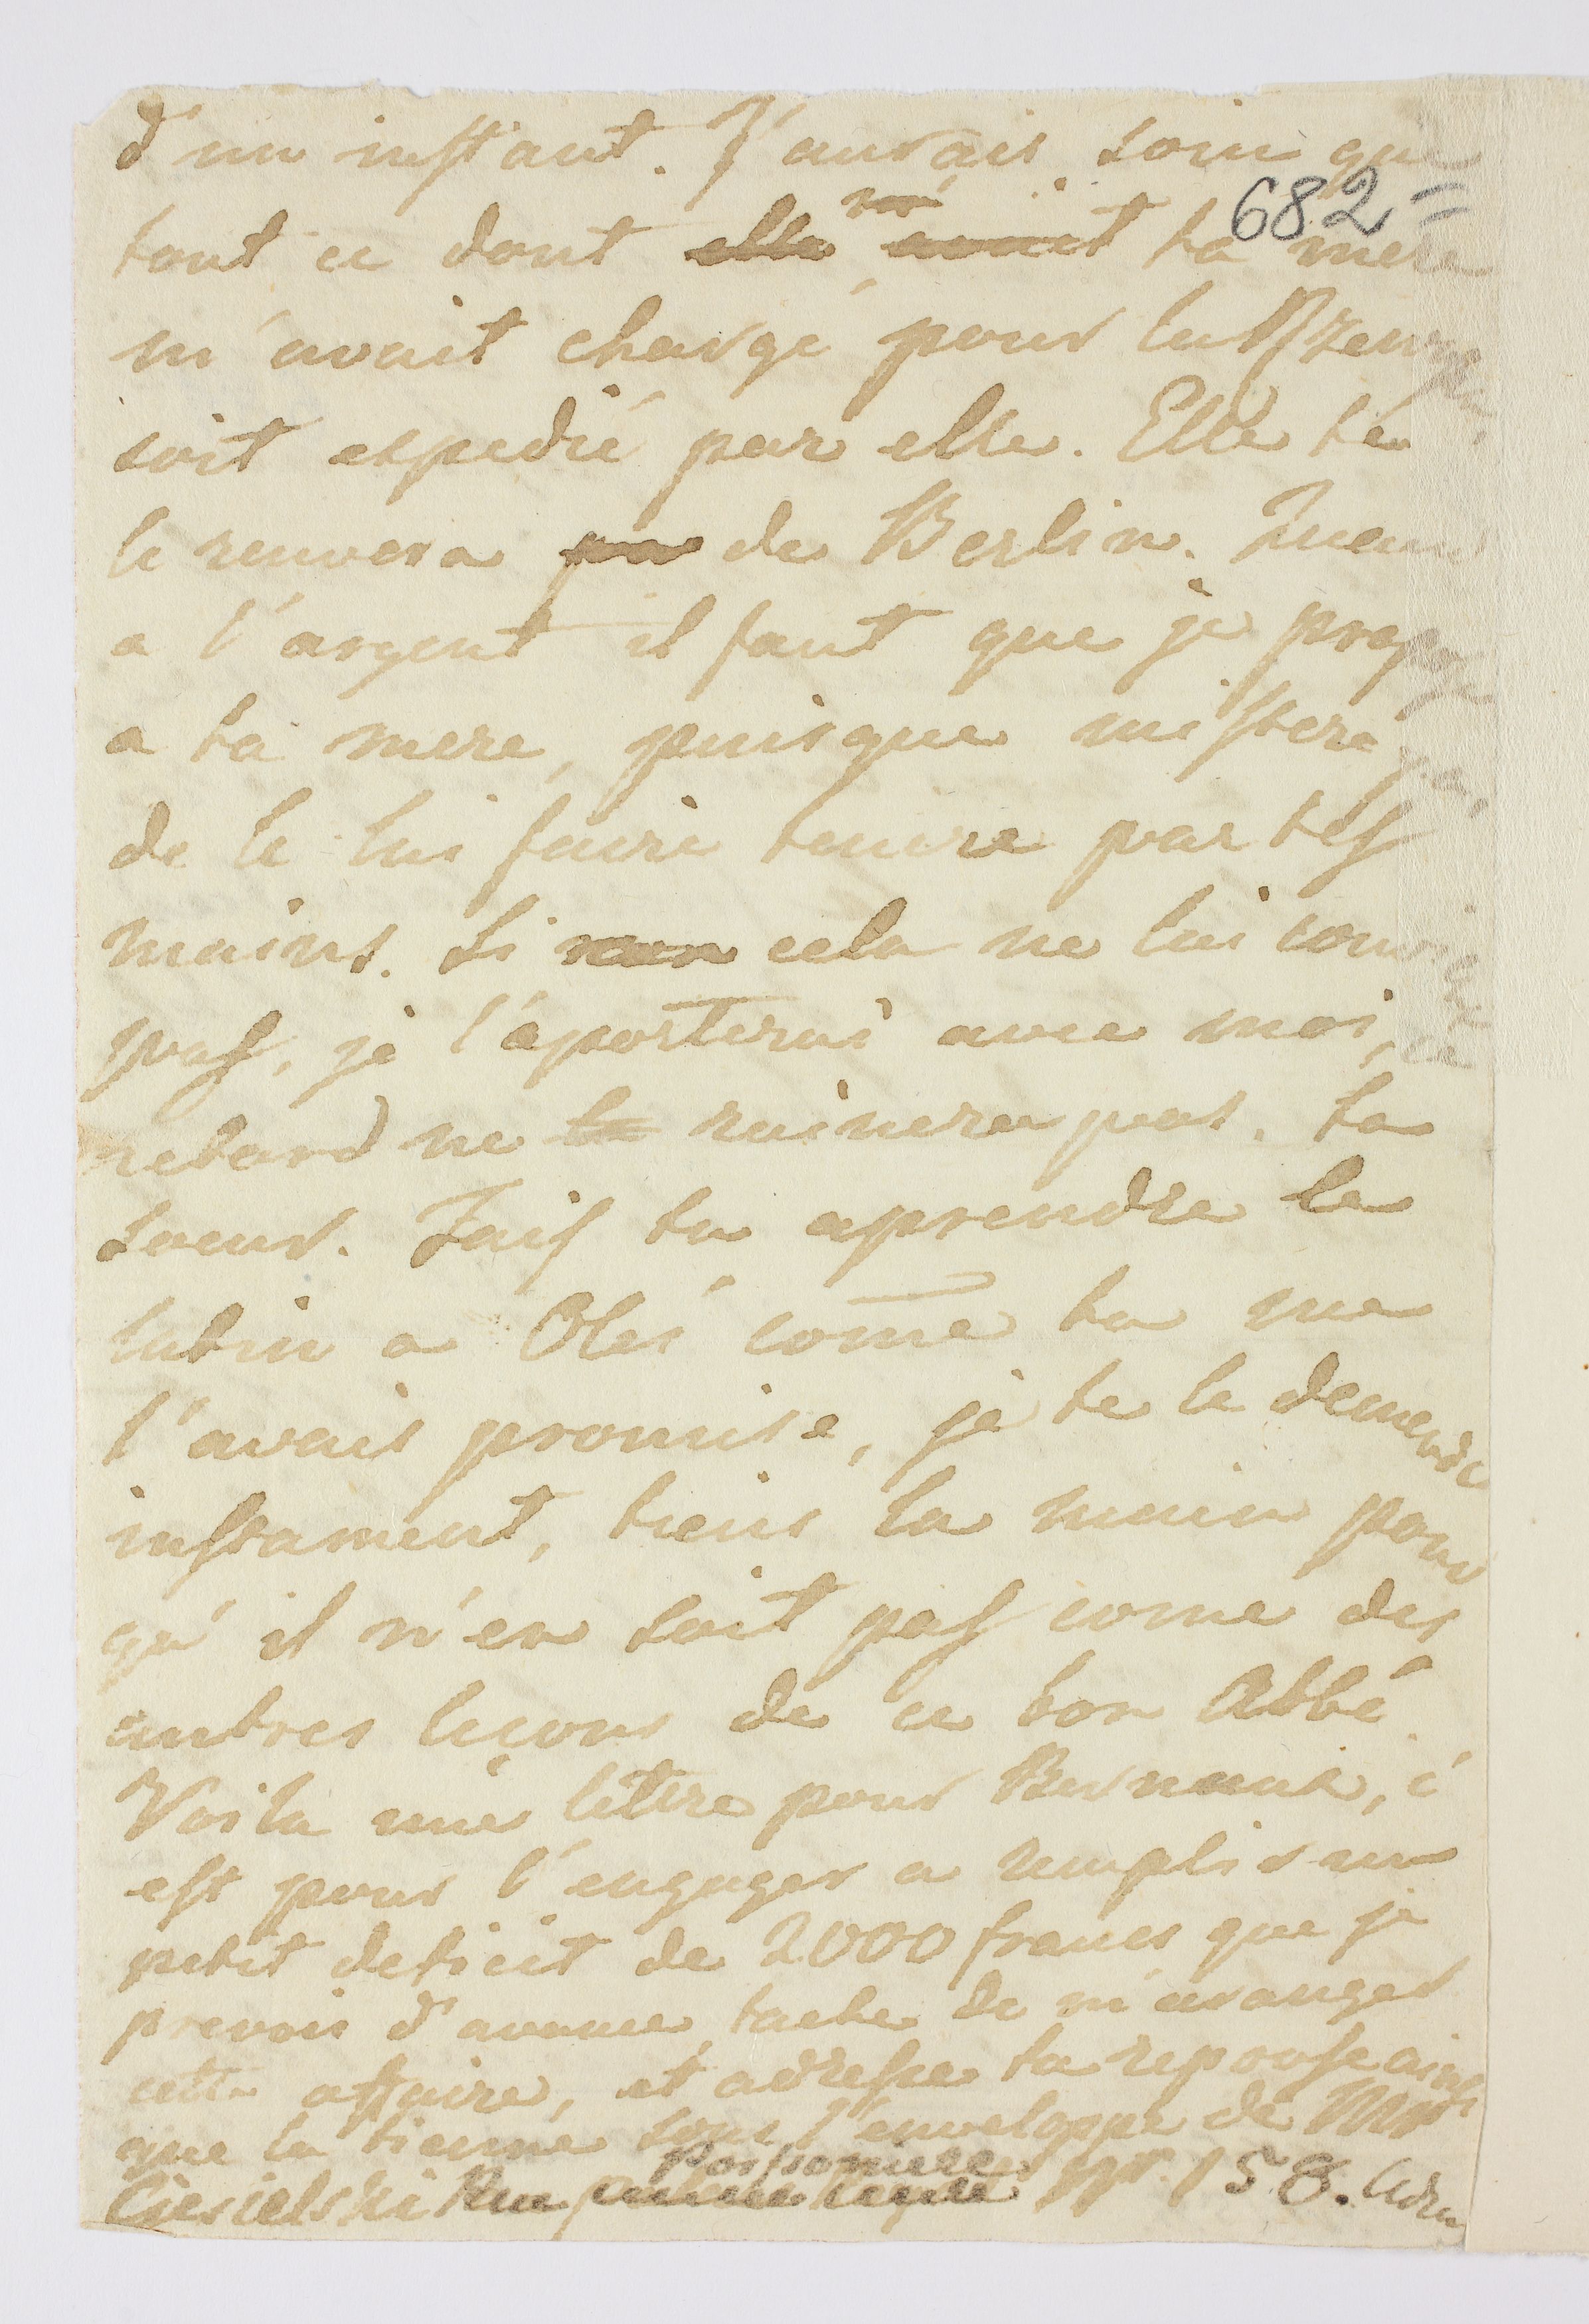 d'un instant. J'aurais soin que
682
tout ce dont ta mere
m'avait charge pour la
soit expedié par elle. Elle te
le renvera de Berlin. Quand
a l'argent il faut que je
a ta mere, puisque
de le lui faire tenire par tes
mains. Si cela ne lui
pas, je l'aporterai avec moi, ce
retard ne ruinera pas. ta
soeur. Fais tu aprendre le
latin a Oles come tu me
l'avais promise, je te le demende
instament, tiens la main pour
qu'il n'en soit pas come des
autres leçons de ce bon Abbé
Voila une lettre pour c
est pour l'engager a remplir un
petit deficit de 2000 francs que je
prevois d'avance, tache de m'aranger
cette affaire, et adresse ta reponse ainsi
que la sienne sous l'enveloppe de Mr
Poissoniere
Ciesielski Rue Nr. 58.